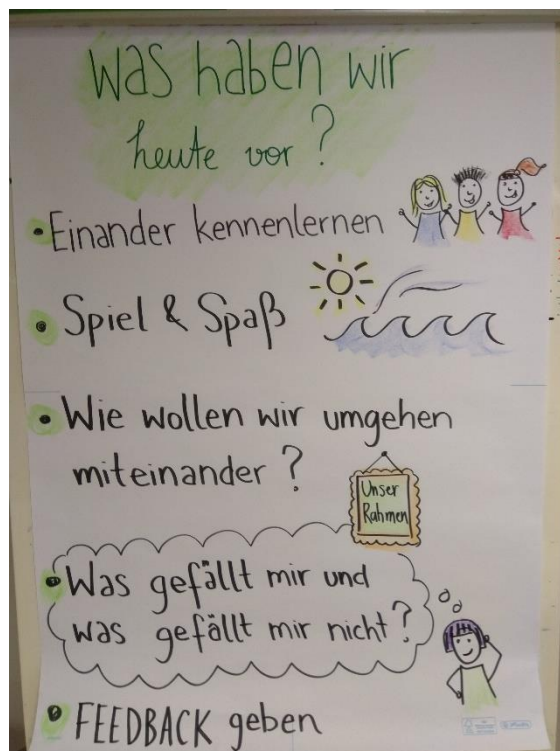 Was haben wir
heute vor?
• Einander kennenlernen
• Spiel & Spaß
• Wie wollen wir umgehen
miteinander?
Unser
Rahmen
• Was gefällt mir und
was gefällt mir nicht?
• FEEDBACK geben